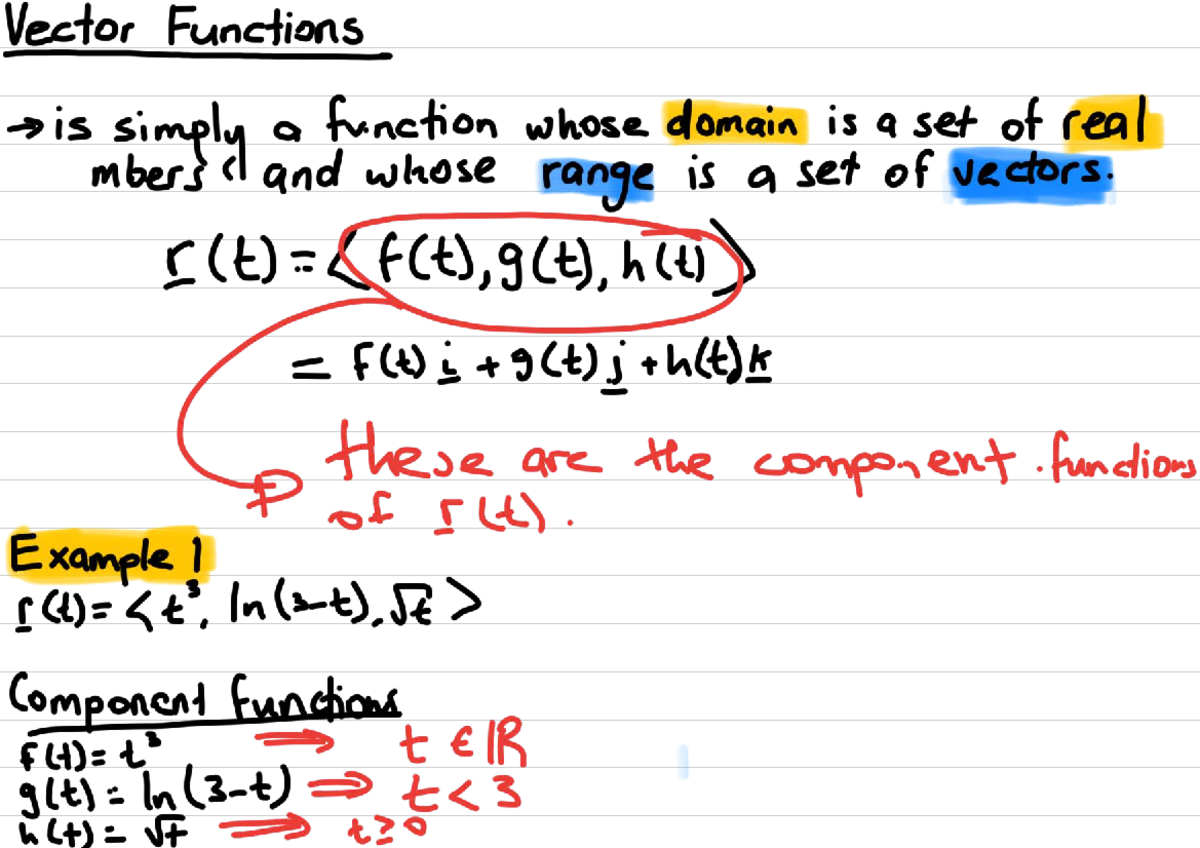 Vector Functions
→ is simply a function whose domain is a set of real
mbers and whose range is a set of vectors.
r(t) = < f(t), g(t), h(t) >
= f(t) i + g(t) j + h(t) k
these are the component functions
of r(t).
Example 1
r(t) = < t³, ln(3-t), √t >
Component functions
f(t) = t³ ⇒ t ∈ ℝ
g(t) = ln(3-t) ⇒ t < 3
h(t) = √t ⇒ t ≥ 0